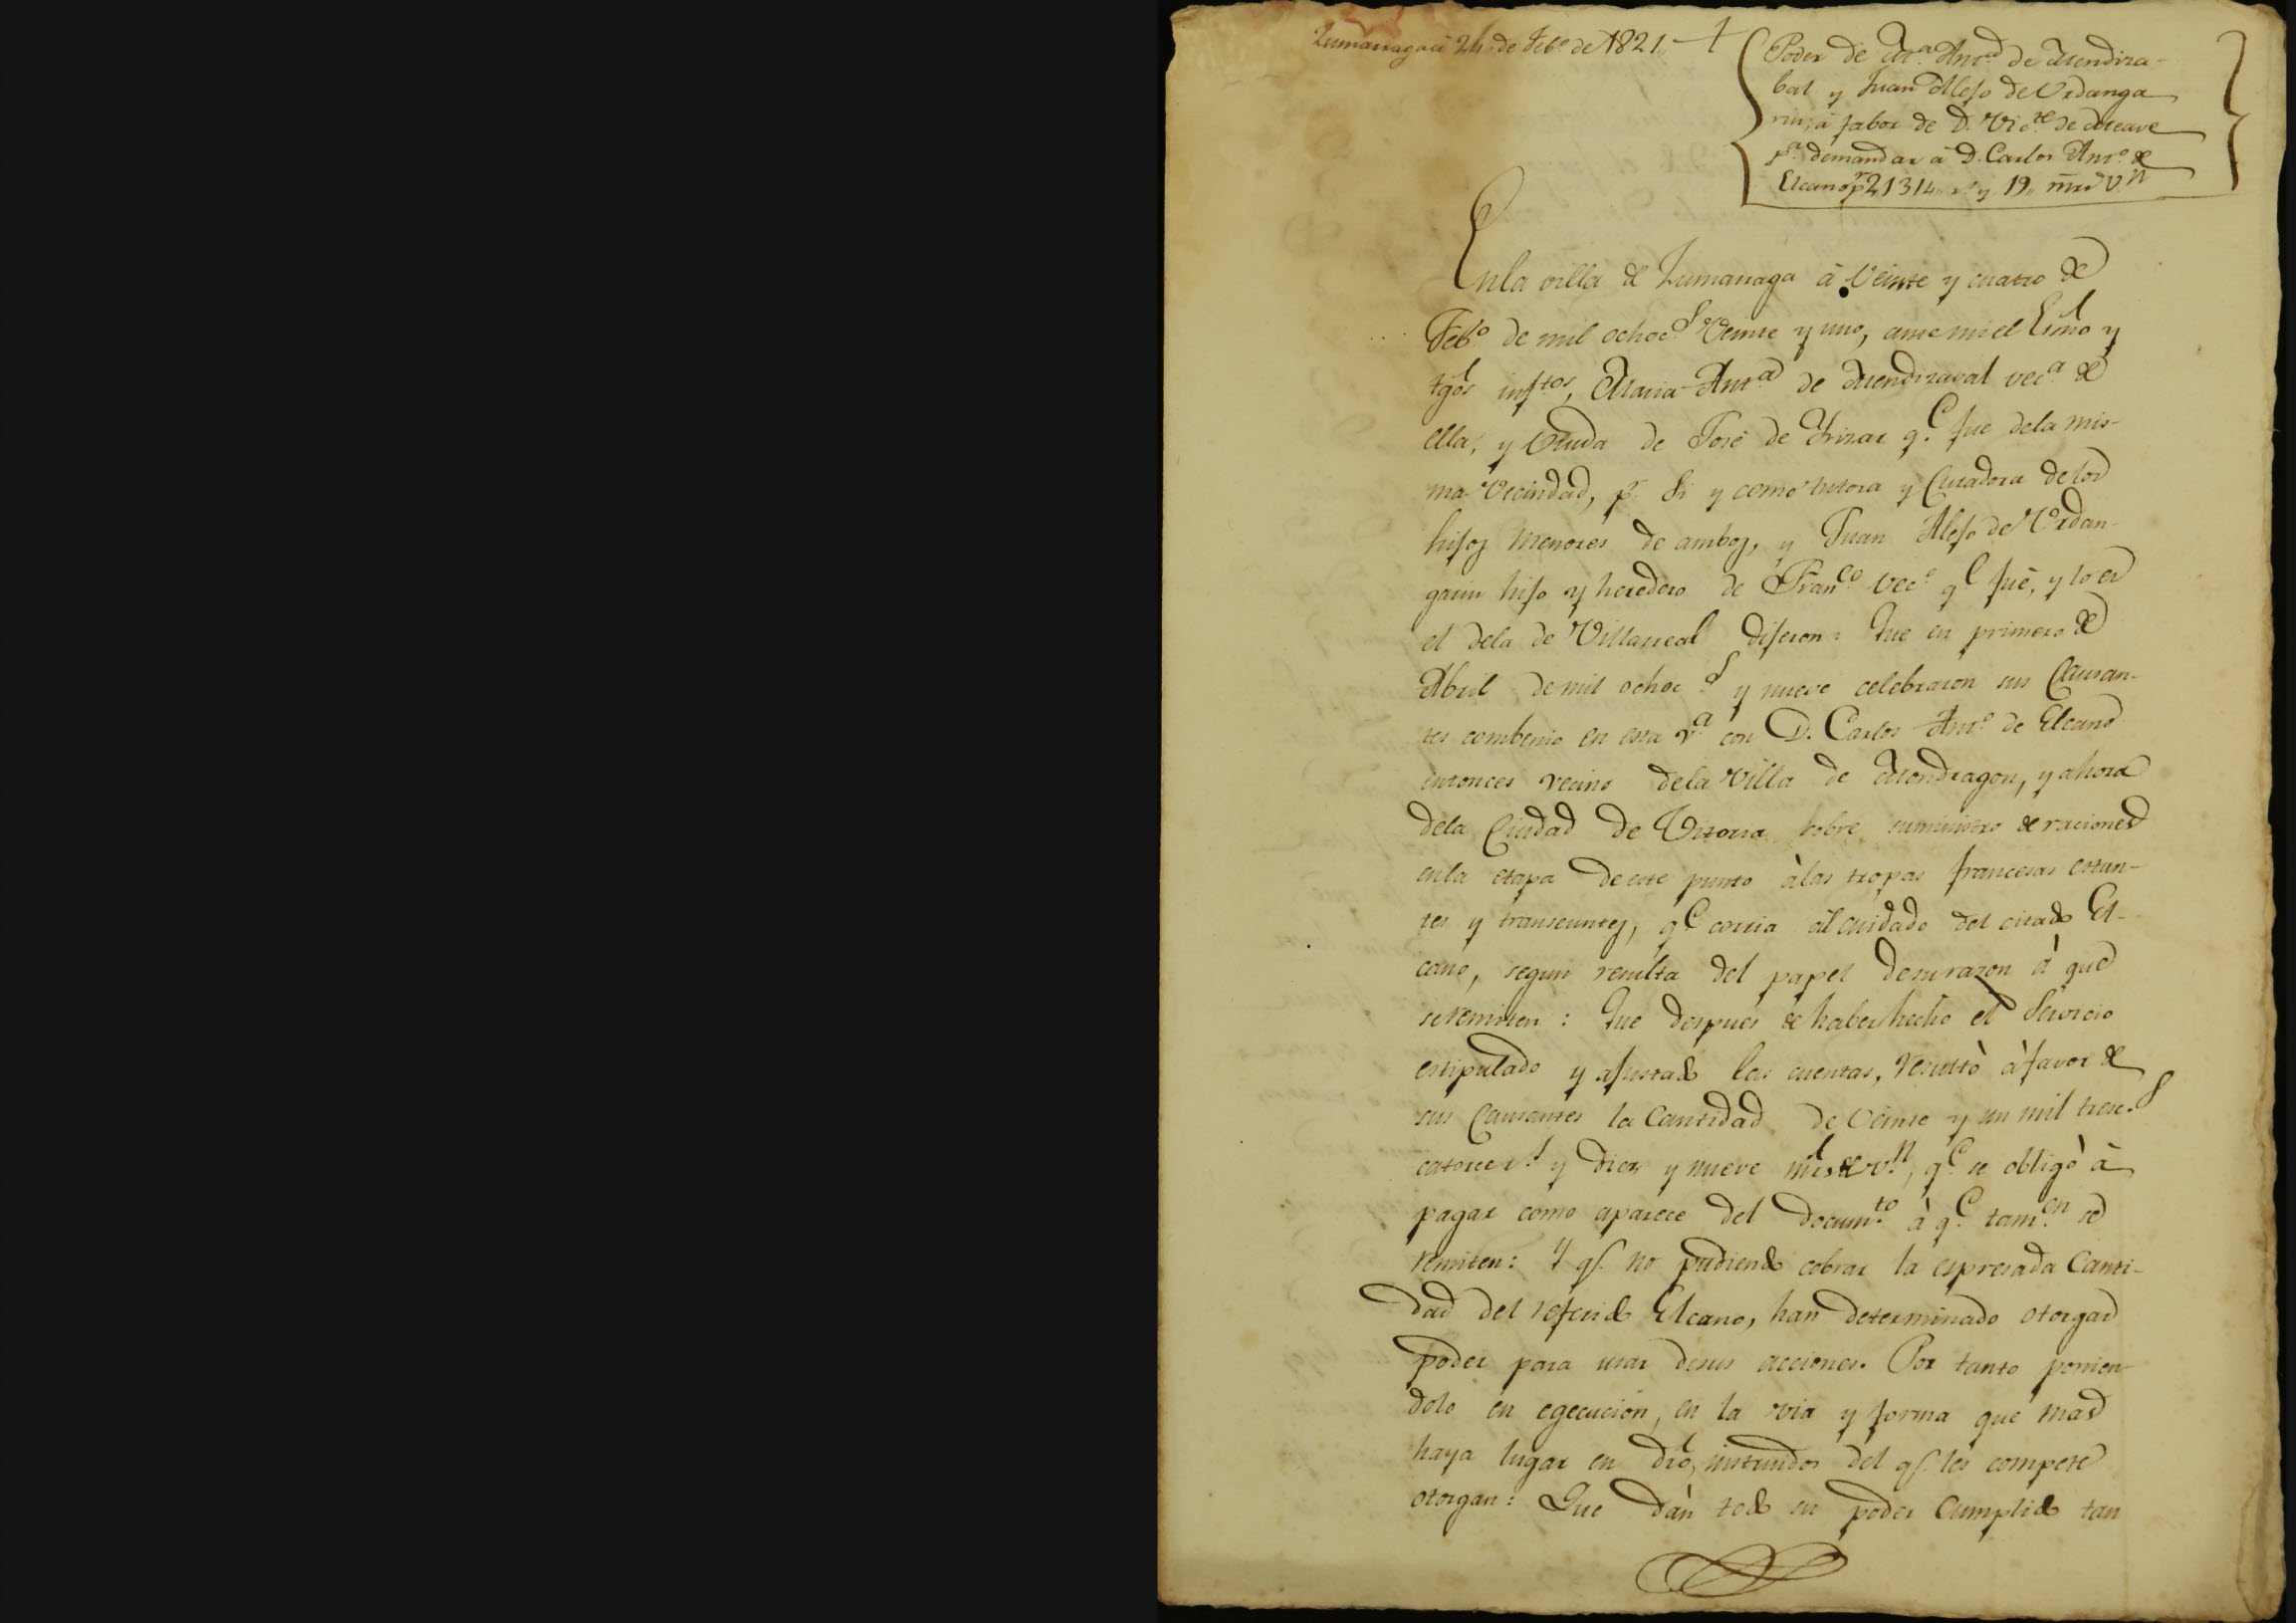 Zumarraga à 24 de Feb.º de 1821,, +
Poder de M.ª Ant.ª de Mendiza-
bal y Juan Alejo de Urdanga
rin, à fabor de D. Vic.te de Areave
p.ª demandar à D. Carlos Ant.º de
Elcano p.r 21314,, r.s y 19,, mrs v.n
En la villa de Zumarraga à veinte y cuatro de
Feb.º de mil ochoc.s veinte y uno, ante mi el Esno y
tgos inf.tos, Maria Ant.ª de Mendizaval vec.ª de
ella, y Viuda de José de Yrizar q.e fue dela mis-
ma vecindad, p.r Si y como tutora y Curadora delos
hijos menores de ambos, y Juan Alejo de Urdan-
garin hijo y heredero de Fran.co vec.º q.e fué, y lo es
el dela de Villarreal dijeron: Que en primero de
Abril de mil ochoc.s y nueve celebraron sus Causan-
tes combenio en esta v.ª con D. Carlos Ant.º de Elcano
entonces vecino dela Villa de Mondragon, y ahora
dela Ciudad de Vitoria sobre suministro de raciones
enla etapa de este punto àlas tropas francesas estan-
tes y transeuntes, q.e corria al cuidado del citado El-
cano, segun resulta del papel desu razon à que
se remiten: Que despues de haber hecho el Servicio
estipulado y ajustado las cuentas, resultò à favor de
sus Causantes la Cantidad de veinte y un mil tresc.s
catorce r.s y diez y nueve mrs de v.n, q.e se obligò à
pagar como aparece del docum.to à q.e tam.en se
remiten: Y q.e no pudiendo cobrar la espresada Canti-
dad del referido Elcano, han determinado otorgar
poder para usar desus acciones. Por tanto ponien-
dolo en egecucion, en la via y forma que mas
haya lugar en dro, instruidos del q.e les compete
otorgan: Que dàn todo su poder Cumplido tan